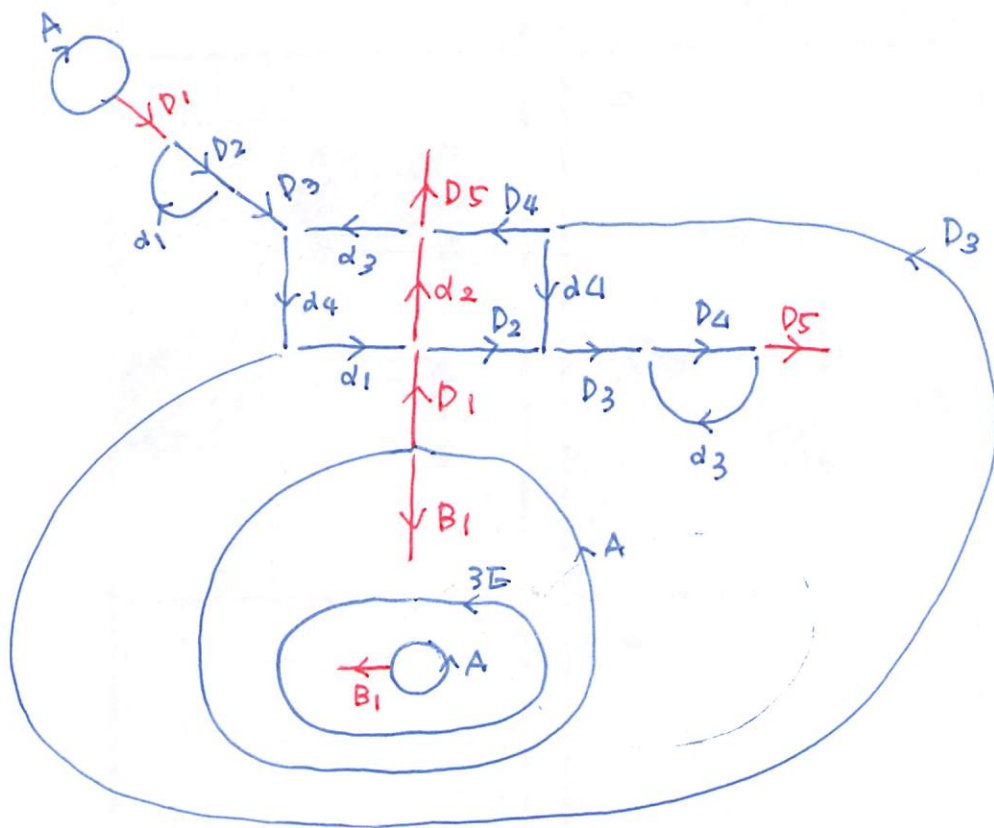 A
D1
D2
D3
d1
D5
D4
D3
d3
d4
d2
d4
D2
D4
D5
d1
D1
D3
d3
B1
A
3E
A
B1